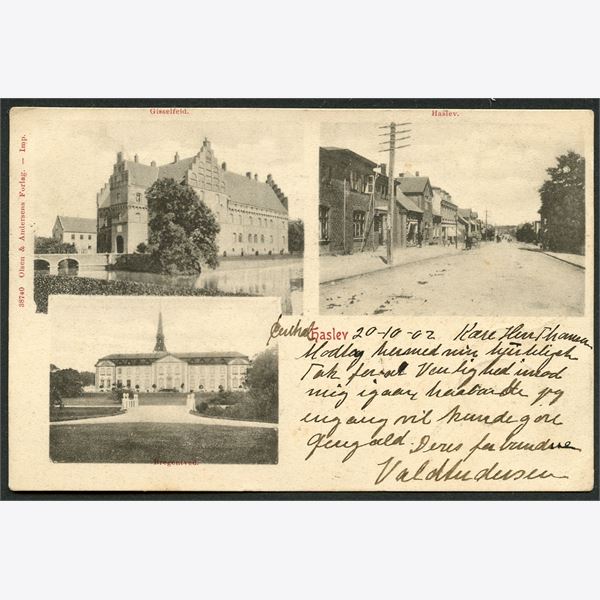 Gisselfeld.
Haslev.
38740 Olsen & Andersens Forlag. — Imp.
Bregentved.
Haslev 20-10-02 Kære Herr Thomsen
Modtag herved min hjerteligste
Tak for al Venlighed imod
mig igaar, haaber at jeg
engang vil kunde gøre
Gengæld. Deres forbundne
Vald Andersen